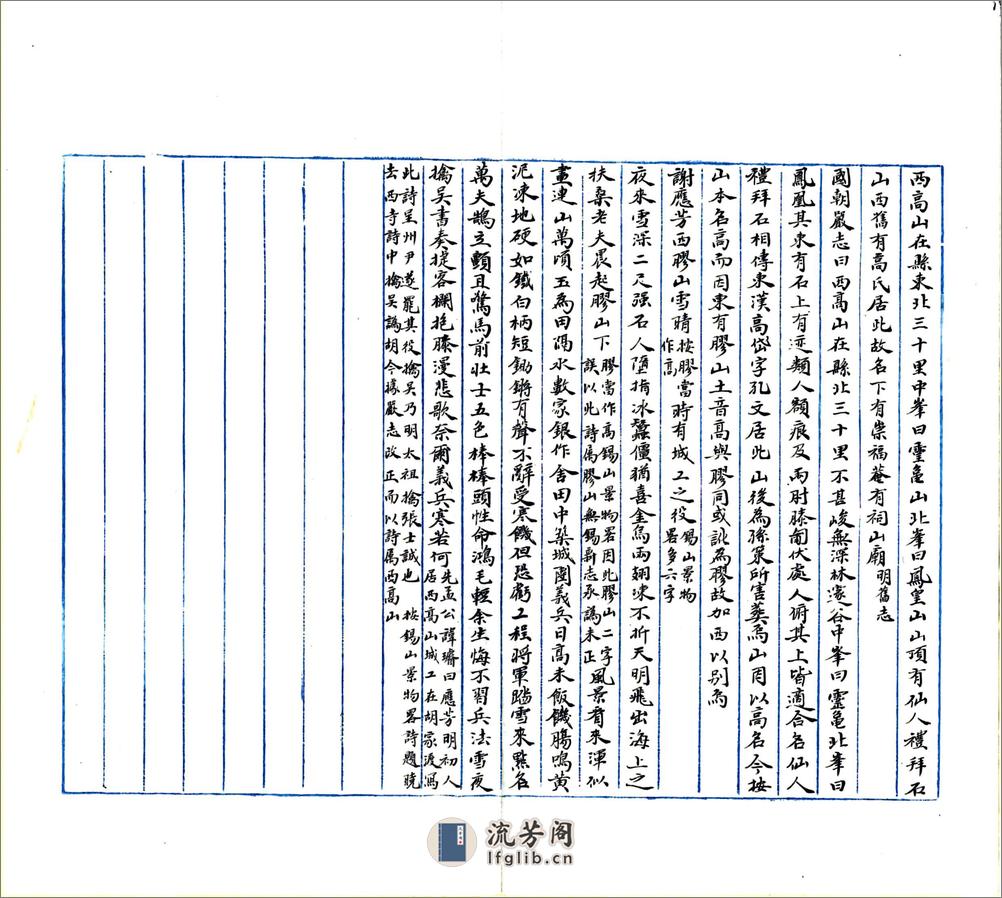 西高山在縣東北三十里中峯曰靈龜山北峯曰鳳凰山山頂有仙人禮拜石
山西舊有高氏居此故名下有崇福菴有祠山廟明舊志
國朝嚴志曰西高山在縣北三十里不甚峻無深林濬谷中峯曰靈龜北峯曰
鳳凰其東有石上有迹類人額痕及兩肘膝匍伏處人俯其上皆適合名仙人
禮拜石相傳東漢高岱字孔文居此山後為孫策所害葬焉山因以高名今按
山本名高而因東有膠山土音高與膠同或訛為膠故加西以別焉
謝應芳西膠山雪晴按膠當作高時有城工之役錫山景物畧多六字
夜來雪深二尺强石人墮指冰蠶僵猶喜金烏兩翅凍不折天明飛出海上之
扶桑老夫晨起膠山下膠當作高錫山景物畧因此膠山二字誤以此詩屬膠山無錫新志承譌未正風景看來渾似
畫連山萬頃玉為田隔水數家銀作舍田中築城圍義兵日高未飯饑腸鳴黃
泥凍地硬如鐵白柄短鋤鏘有聲不辭受寒饑但恐虧工程將軍踏雪來點名
萬夫鵠立顫且驚馬前壯士五色棒棒頭性命鴻毛輕余生悔不習兵法雪夜
擒吳書奏捷客欄抱膝漫悲歌奈爾義兵寒若何先孟公諱璿曰應芳明初人居西高山城工在胡家渡寫
此詩呈州尹遂罷其役擒吳乃明太祖擒張士誠也　按錫山景物畧詩題曉
去西寺詩中擒吳譌胡今據嚴志改正而以詩屬西高山
流芳阁
lfglib.cn